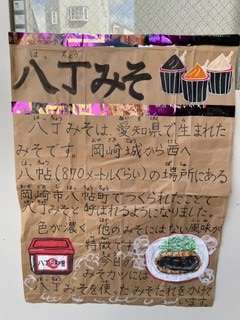 八丁みそ
八丁みそは、愛知県で生まれた
みそです。岡崎城から西へ
八帖(870メートルくらい)の場所にある
岡崎市八帖町でつくられたことで
八丁みそと呼ばれるようになりました。
色が濃く、他のみそにはない風味が
特徴です。
みそカツには
八丁みそを使ったみそだれをかけ